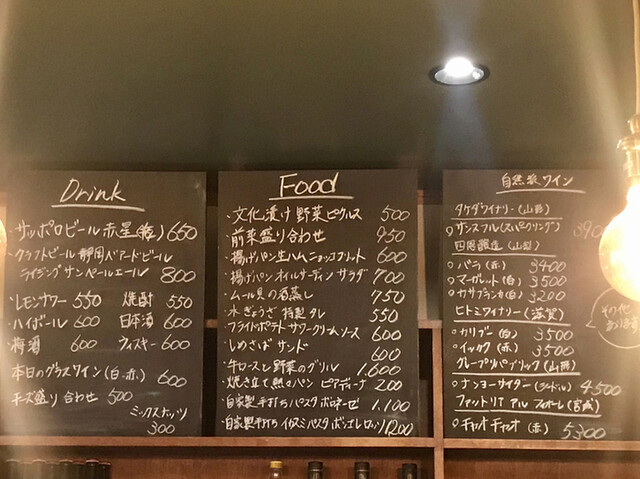 Drink
・サッポロビール 赤星(瓶) 650
・クラフトビール 静岡ベアードビール
ライジングサンペールエール 800
・レモンサワー 550 焼酎 550
・ハイボール 600 日本酒 600
・梅酒 600 ウィスキー 600
本日のグラスワイン(白・赤) 600
チーズ盛り合わせ 500
ミックスナッツ 300
Food
・文化漬け 野菜ピクルス 500
・前菜盛り合わせ 950
・揚げパン 生ハム ニョッコフリット 600
・揚げパン オイルサーディン サラダ 700
・ムール貝の酒蒸し 750
・水ぎょうざ 特製タレ 550
・フライドポテト サワークリームソース 600
・しめさばサンド 600
・牛ロースと野菜のグリル 1,600
・焼き立て 熱々パン ピアディーナ 200
・自家製 手打ちパスタ ボロネーゼ 1,100
・自家製 手打ち イカスミパスタ ロッソ 1200
自然派ワイン
タケダワイナリー(山形)
サンスフル(スパークリング) 390
四恩醸造(山梨)
バラ(赤) 3400
マーガレット(白) 3500
カサブランカ(白) 3200
ヒトミワイナリー(滋賀)
カリブー(白) 3500
イッカク(赤) 3500
グレープリパブリック(山形)
ナンヨーサイダー(シードル) 4500
ファットリア アル フィオーレ(宮城)
チャオ チャオ(赤) 5300
その他
あります